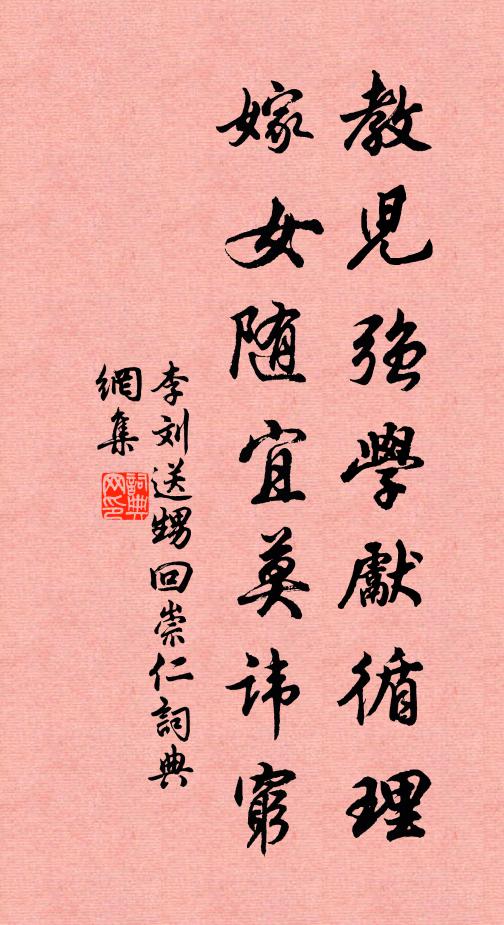 教児強學獻循理
嫁女随宜莫讳窮
李刘送甥回崇仁詞典
網集
詞典
网印